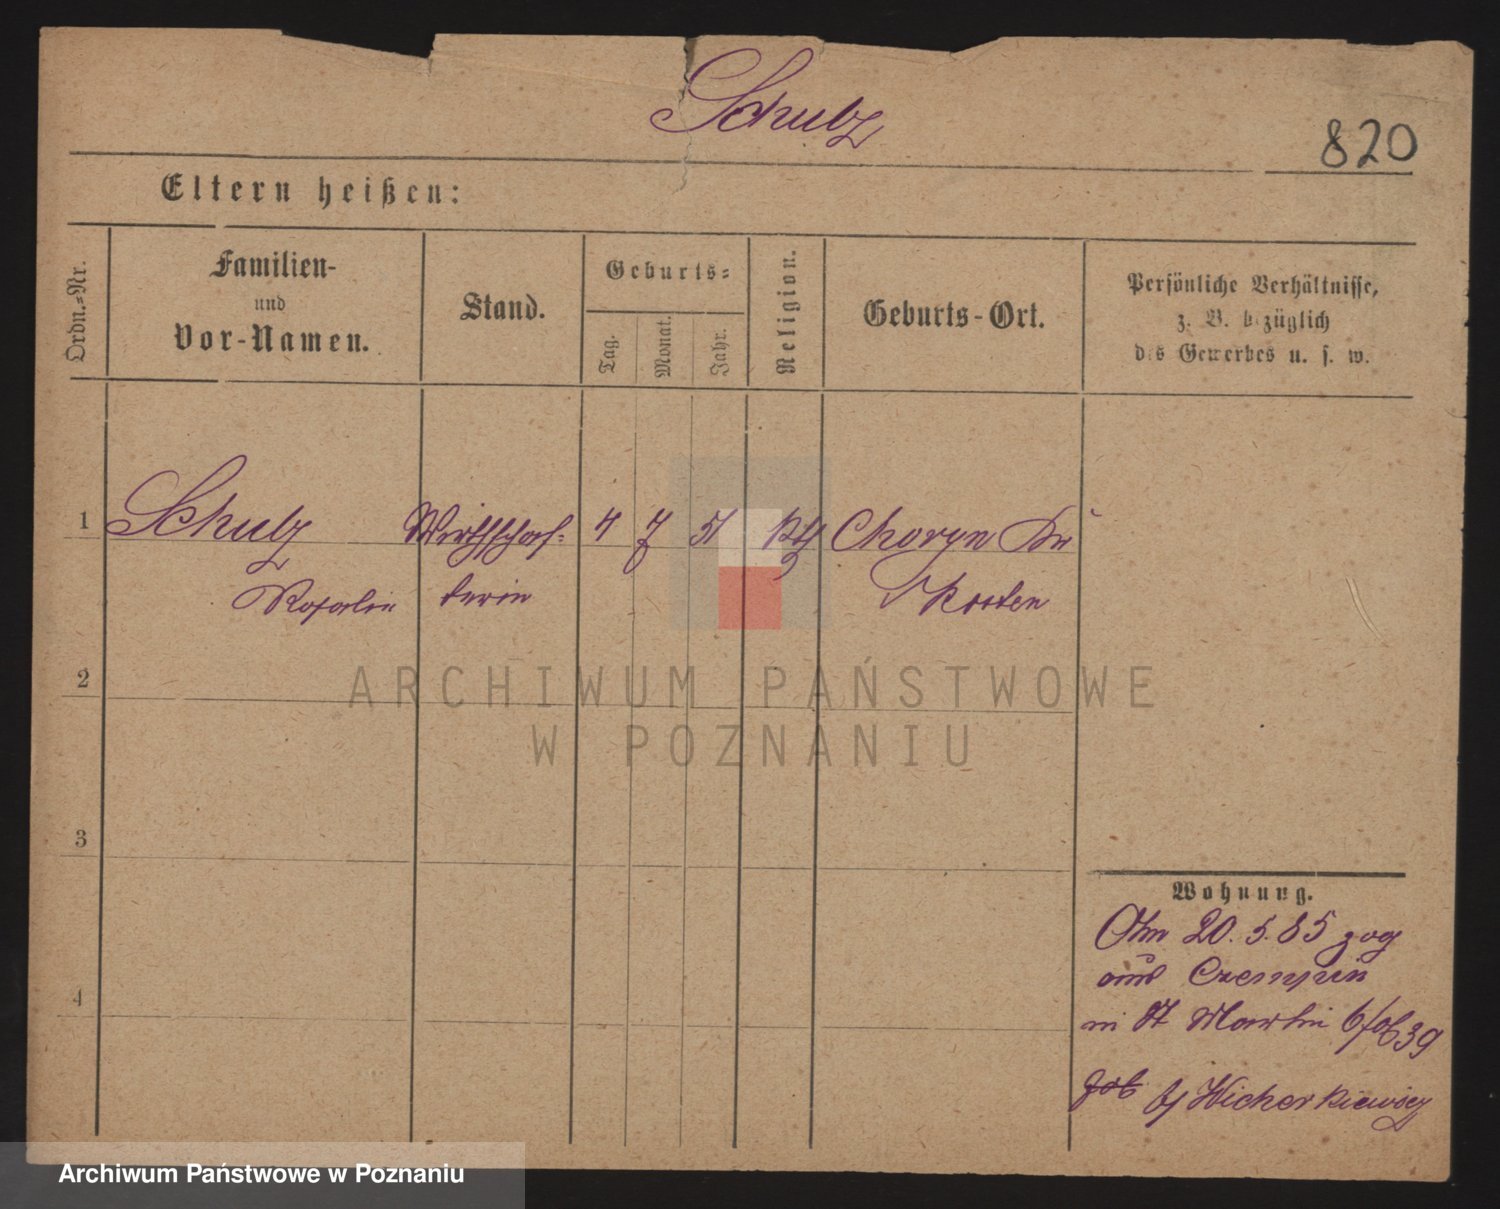 Schulz
820
Eltern heißen:
Ordn.=Nr.
Familien-
und
Vor-Namen.
Stand.
Geburts=
Tag.
Monat.
Jahr.
Religion.
Geburts-Ort.
Persönliche Verhältnisse,
z. B. bezüglich
des Gewerbes u. s. w.
1 Schulz Wirthschaf= 4 7 51 kth Choryn Kr
Rosalie terin Kosten
2
3
4
Wohnung.
20. 5. 85 zog
aus Czempin
in St Martin 39
Wicherkiewicz
ARCHIWUM PAŃSTWOWE
W POZNANIU
Archiwum Państwowe w Poznaniu